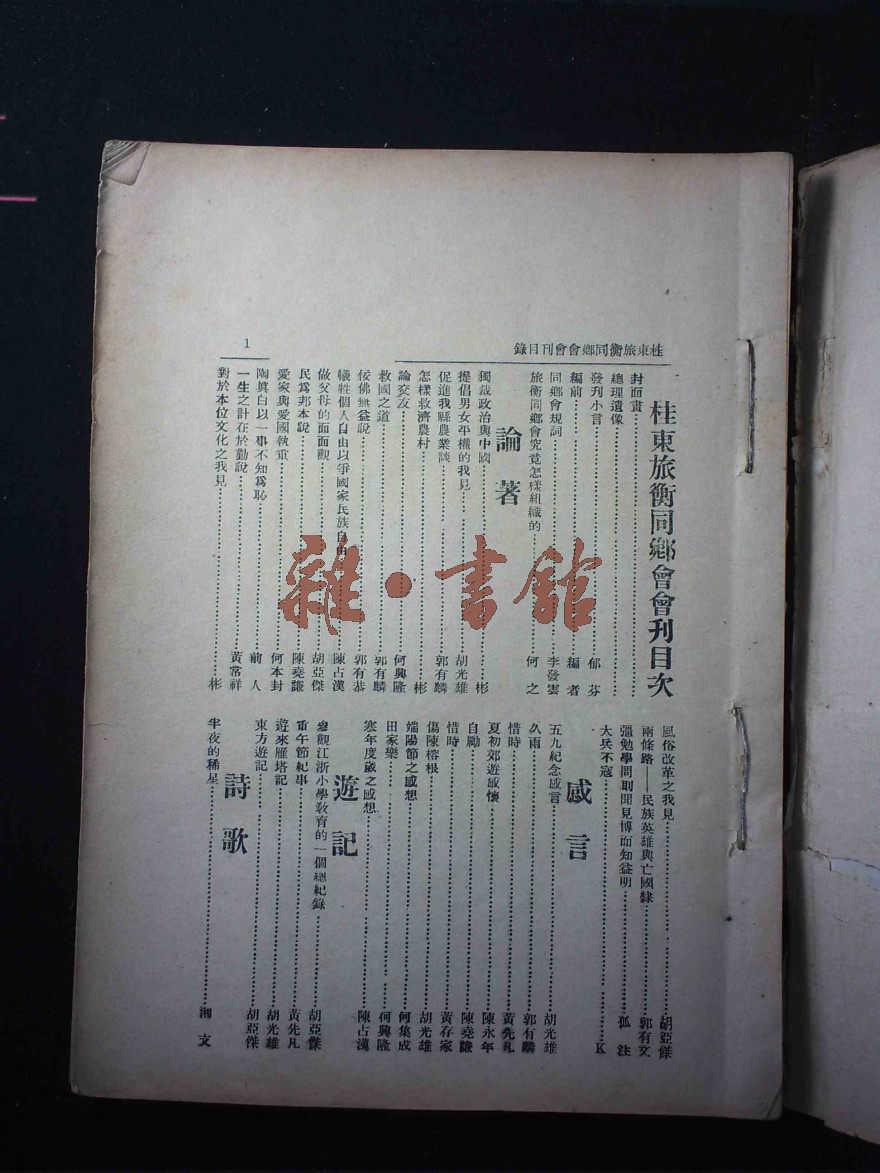 錄目刊會會鄉同衡旅東桂
1
桂東旅衡同鄉會會刊目次
封面畫
總理遺像
發刊小言 郁芬
編前 編者
同鄉會規詞 李發雲
旅衡同鄉會究竟怎樣組織的 何之
論著
獨裁政治與中國 彬
提倡男女平權的我見 胡光雄
促進我縣農業談 郭有麟
怎樣救濟農村 彬
論交友 何興隆
救國之道 郭有麟
佞佛無益說 郭有恭
犧牲個人自由以爭國家民族自由 陳占漢
做父母的面面觀 胡亞傑
民為邦本說 陳堯謙
愛家與愛國孰重 何本封
陶眞白以一事不知為恥 前人
一生之計在於勤說 黃常祥
對於本位文化之我見 彬
風俗改革之我見 胡亞傑
兩條路——民族英雄與亡國隸 郭有文
彊勉學問則聞見博而知益明 孤注
大兵不寇 K
感言
五九紀念感言 胡光雄
久雨 郭有麟
惜時 黃先凡
夏初郊遊感懷 陳永年
自勵 陳堯謙
惜時 黃存家
傷陳榕根 胡光雄
端陽節之感想 何集成
田家樂 何興隆
寒年度歲之感想 陳占漢
遊記
參觀江浙小學教育的一個總紀錄 胡亞傑
重午節紀事 黃先凡
遊來雁塔記 胡光雄
東方遊記 胡亞傑
詩歌
半夜的稀星 湘文
雜·書館